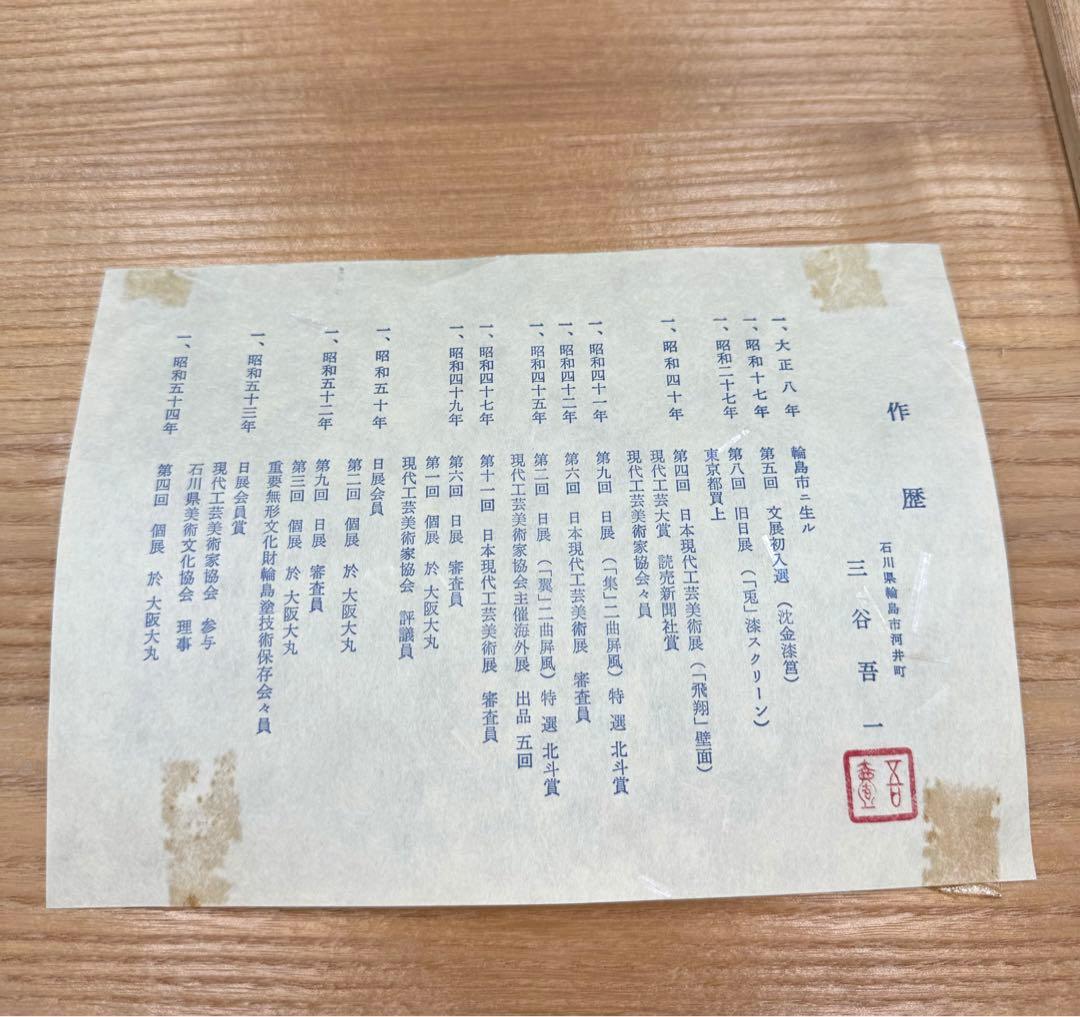 作歴
石川県輪島市河井町
三谷吾一
一、大正八年 輪島市ニ生ル
一、昭和十七年 第五回 文展初入選 (沈金漆筥)
一、昭和二十七年 第八回 旧日展 (「兎」漆スクリーン)
東京都買上
一、昭和四十年 第四回 日本現代工芸美術展 (「飛翔」壁面)
現代工芸大賞 読売新聞社賞
現代工芸美術家協会々員
一、昭和四十一年 第九回 日展 (「集」二曲屏風) 特選 北斗賞
一、昭和四十二年 第六回 日本現代工芸美術展 審査員
一、昭和四十五年 第二回 日展 (「翼」二曲屏風) 特選 北斗賞
現代工芸美術家協会主催海外展 出品 五回
一、昭和四十七年 第十一回 日本現代工芸美術展 審査員
一、昭和四十九年 第六回 日展 審査員
第一回 個展 於 大阪大丸
現代工芸美術家協会 評議員
一、昭和五十年 日展会員
第二回 個展 於 大阪大丸
一、昭和五十二年 第九回 日展 審査員
第三回 個展 於 大阪大丸
重要無形文化財輪島塗技術保存会々員
一、昭和五十三年 日展会員賞
現代工芸美術家協会 参与
石川県美術文化協会 理事
一、昭和五十四年 第四回 個展 於 大阪大丸